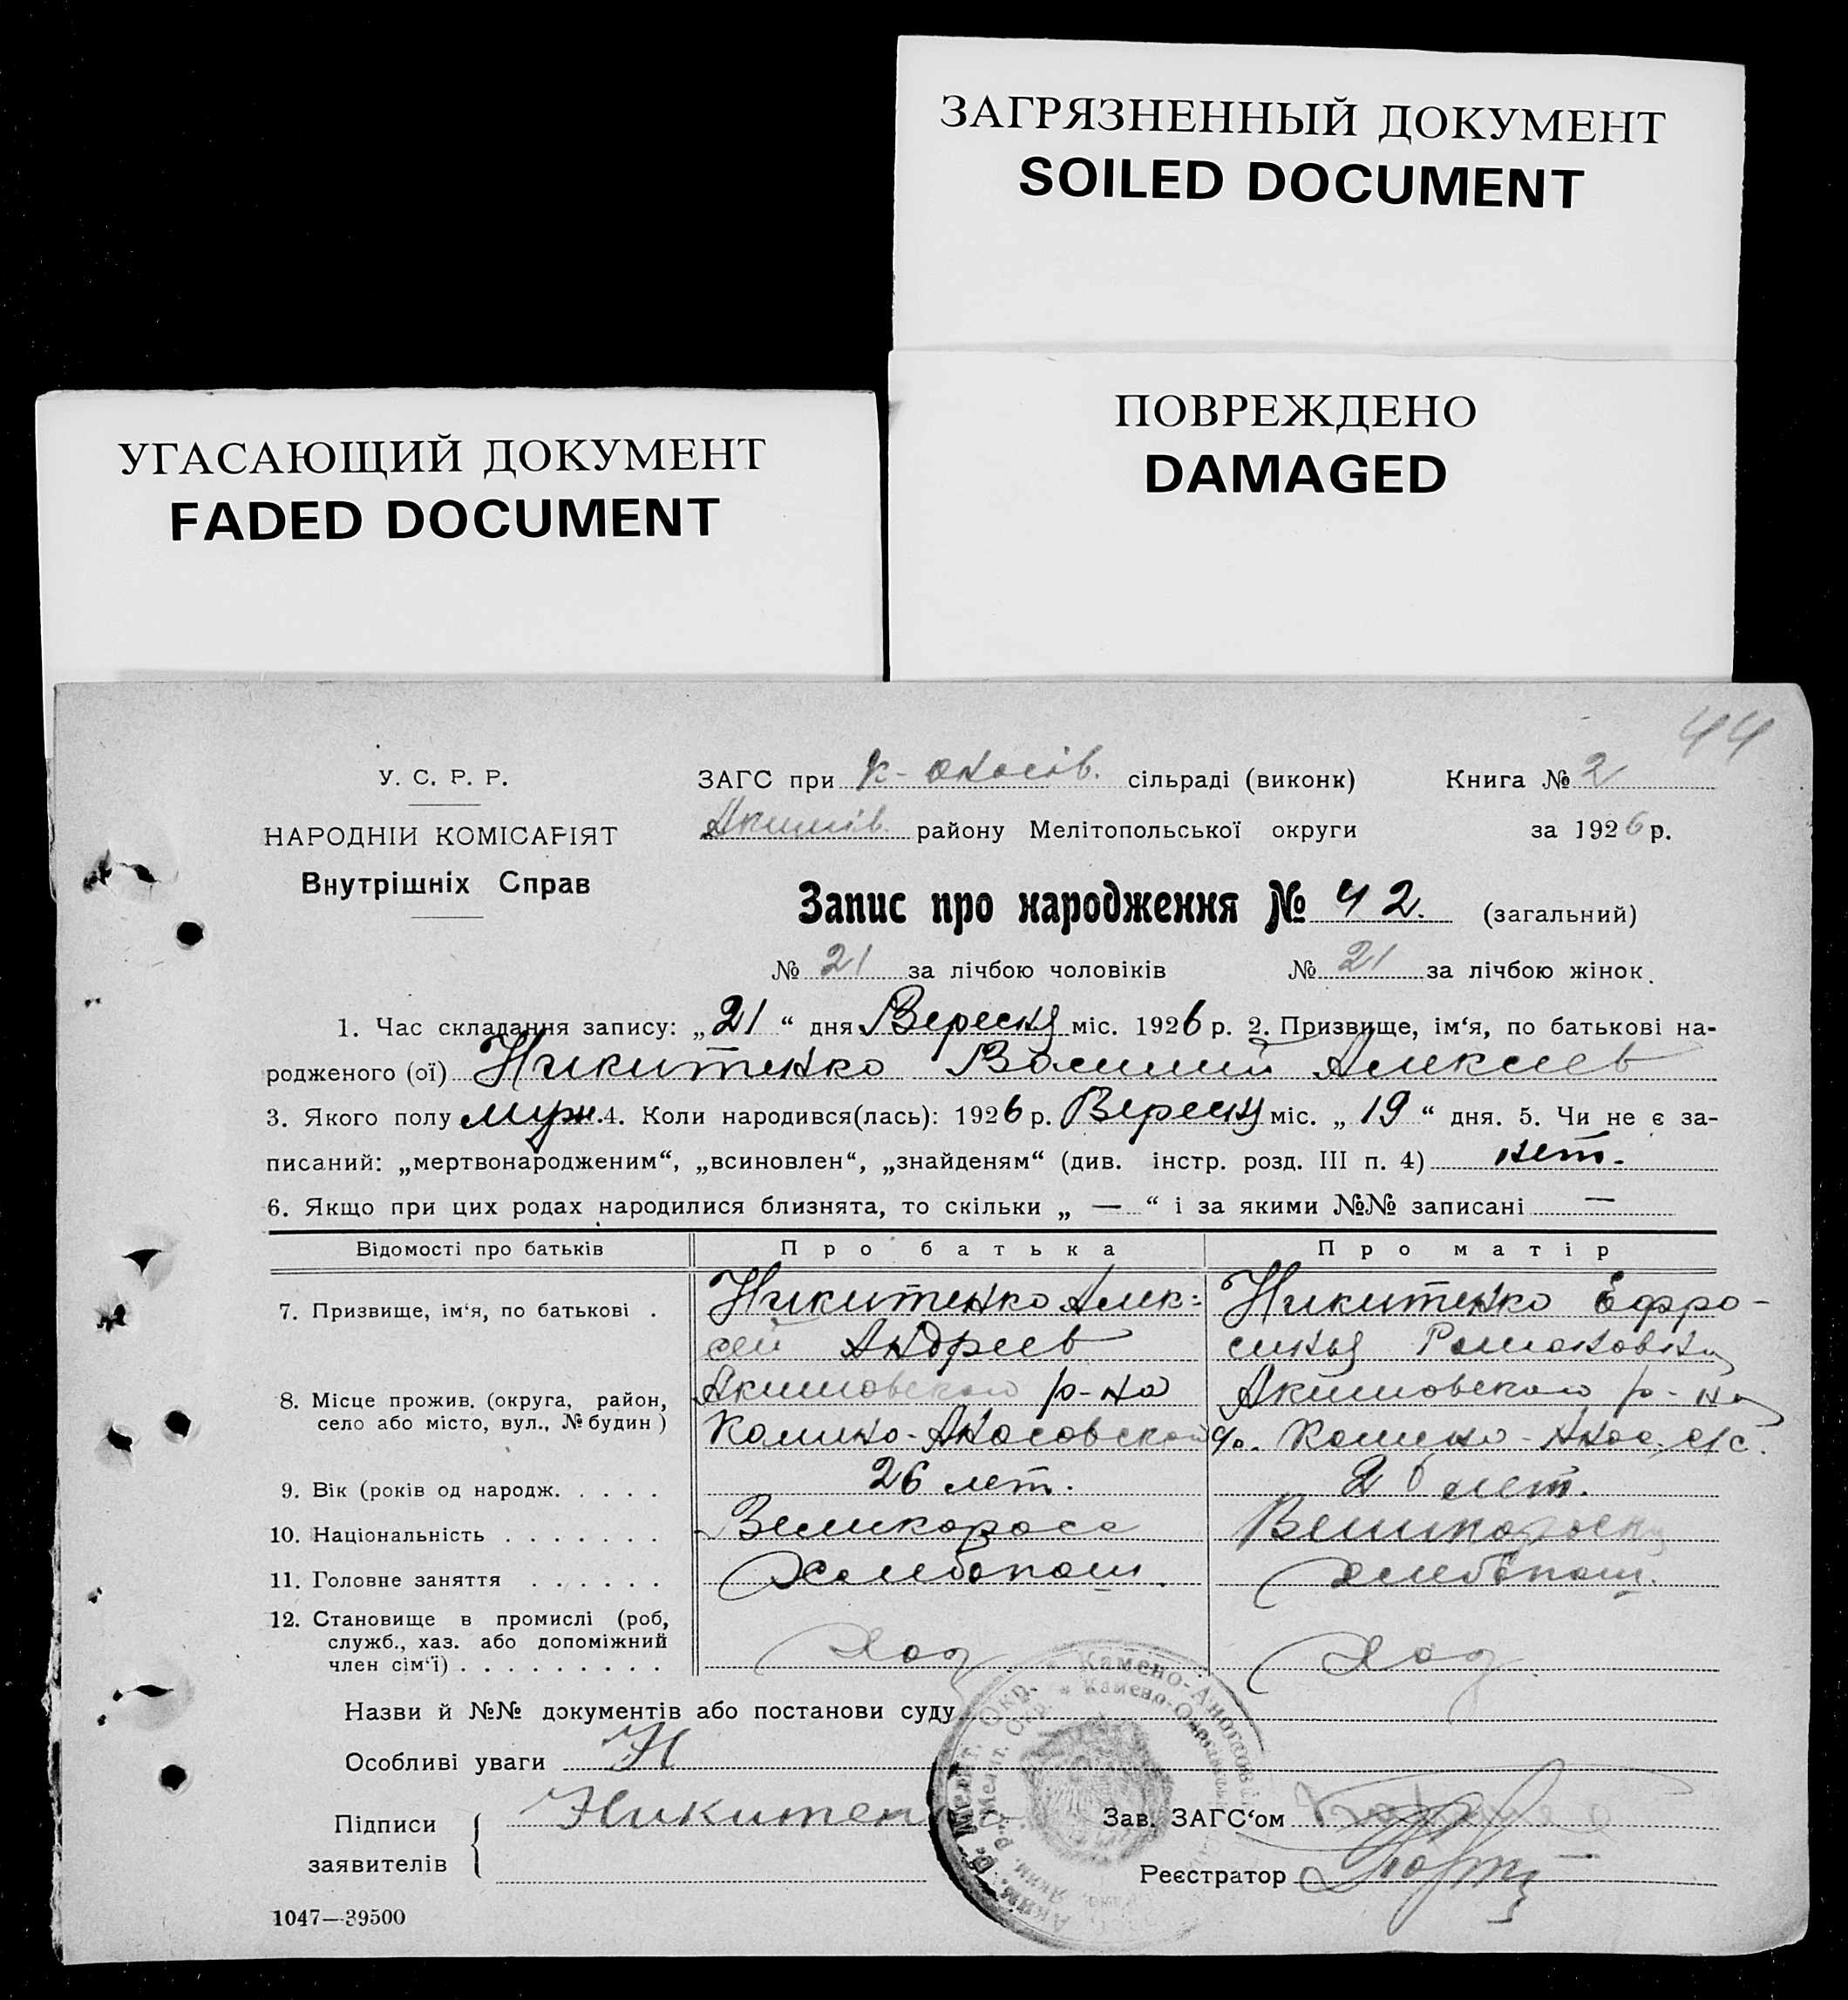 ЗАГРЯЗНЕННЫЙ ДОКУМЕНТ
SOILED DOCUMENT
ПОВРЕЖДЕНО
DAMAGED
УГАСАЮЩИЙ ДОКУМЕНТ
FADED DOCUMENT
44
У. С. Р. Р.
НАРОДНІЙ КОМІСАРІЯТ
Внутрішніх Справ
ЗАГС при К-Аносів. сільраді (виконк) Книга № 2
Якимів. району Мелітопольської округи за 1926 р.
Запис про народження № 42. (загальний)
№ 21 за лічбою чоловіків № 21 за лічбою жінок.
1. Час складання запису: „21“ дня Вересня міс. 1926 р. 2. Призвище, ім‘я, по батькові на-
родженого (ої) Никитенко Василий Алексеев
3. Якого полу муж. 4. Коли народився(лась): 1926 р. Вересня міс. „19“ дня. 5. Чи не є за-
писаний: „мертвонародженим“, „всиновлен“, „знайденям“ (див. інстр. розд. III п. 4) нет.
6. Якщо при цих родах народилися близнята, то скільки „—“ і за якими №№ записані —
Відомості про батьків Про батька Про матір
7. Призвище, ім‘я, по батькові . Никитенко Алек= Никитенко Ефро-
сей Андреев синья Романовна
8. Місце прожив. (округа, район, Акимовского р-на Акимовского р-на
село або місто, вул., № будин) Камено-Аносовской Камено-Анос. с/с.
9. Вік (років од народж. . . . . 26 лет. 26 лет.
10. Національність . . . . . . . Великоросс Великороска
11. Головне заняття . . . . . . Хлебопаш. Хлебопаш.
12. Становище в промислі (роб,
служб., хаз. або допоміжний
член сім‘ї) . . . . . . . . . Хоз. Хоз.
Назви й №№ документів або постанови суду
Особливі уваги Н
Підписи
заявителів
Никитен
Зав. ЗАГС‘ом
Реєстратор
1047—39500